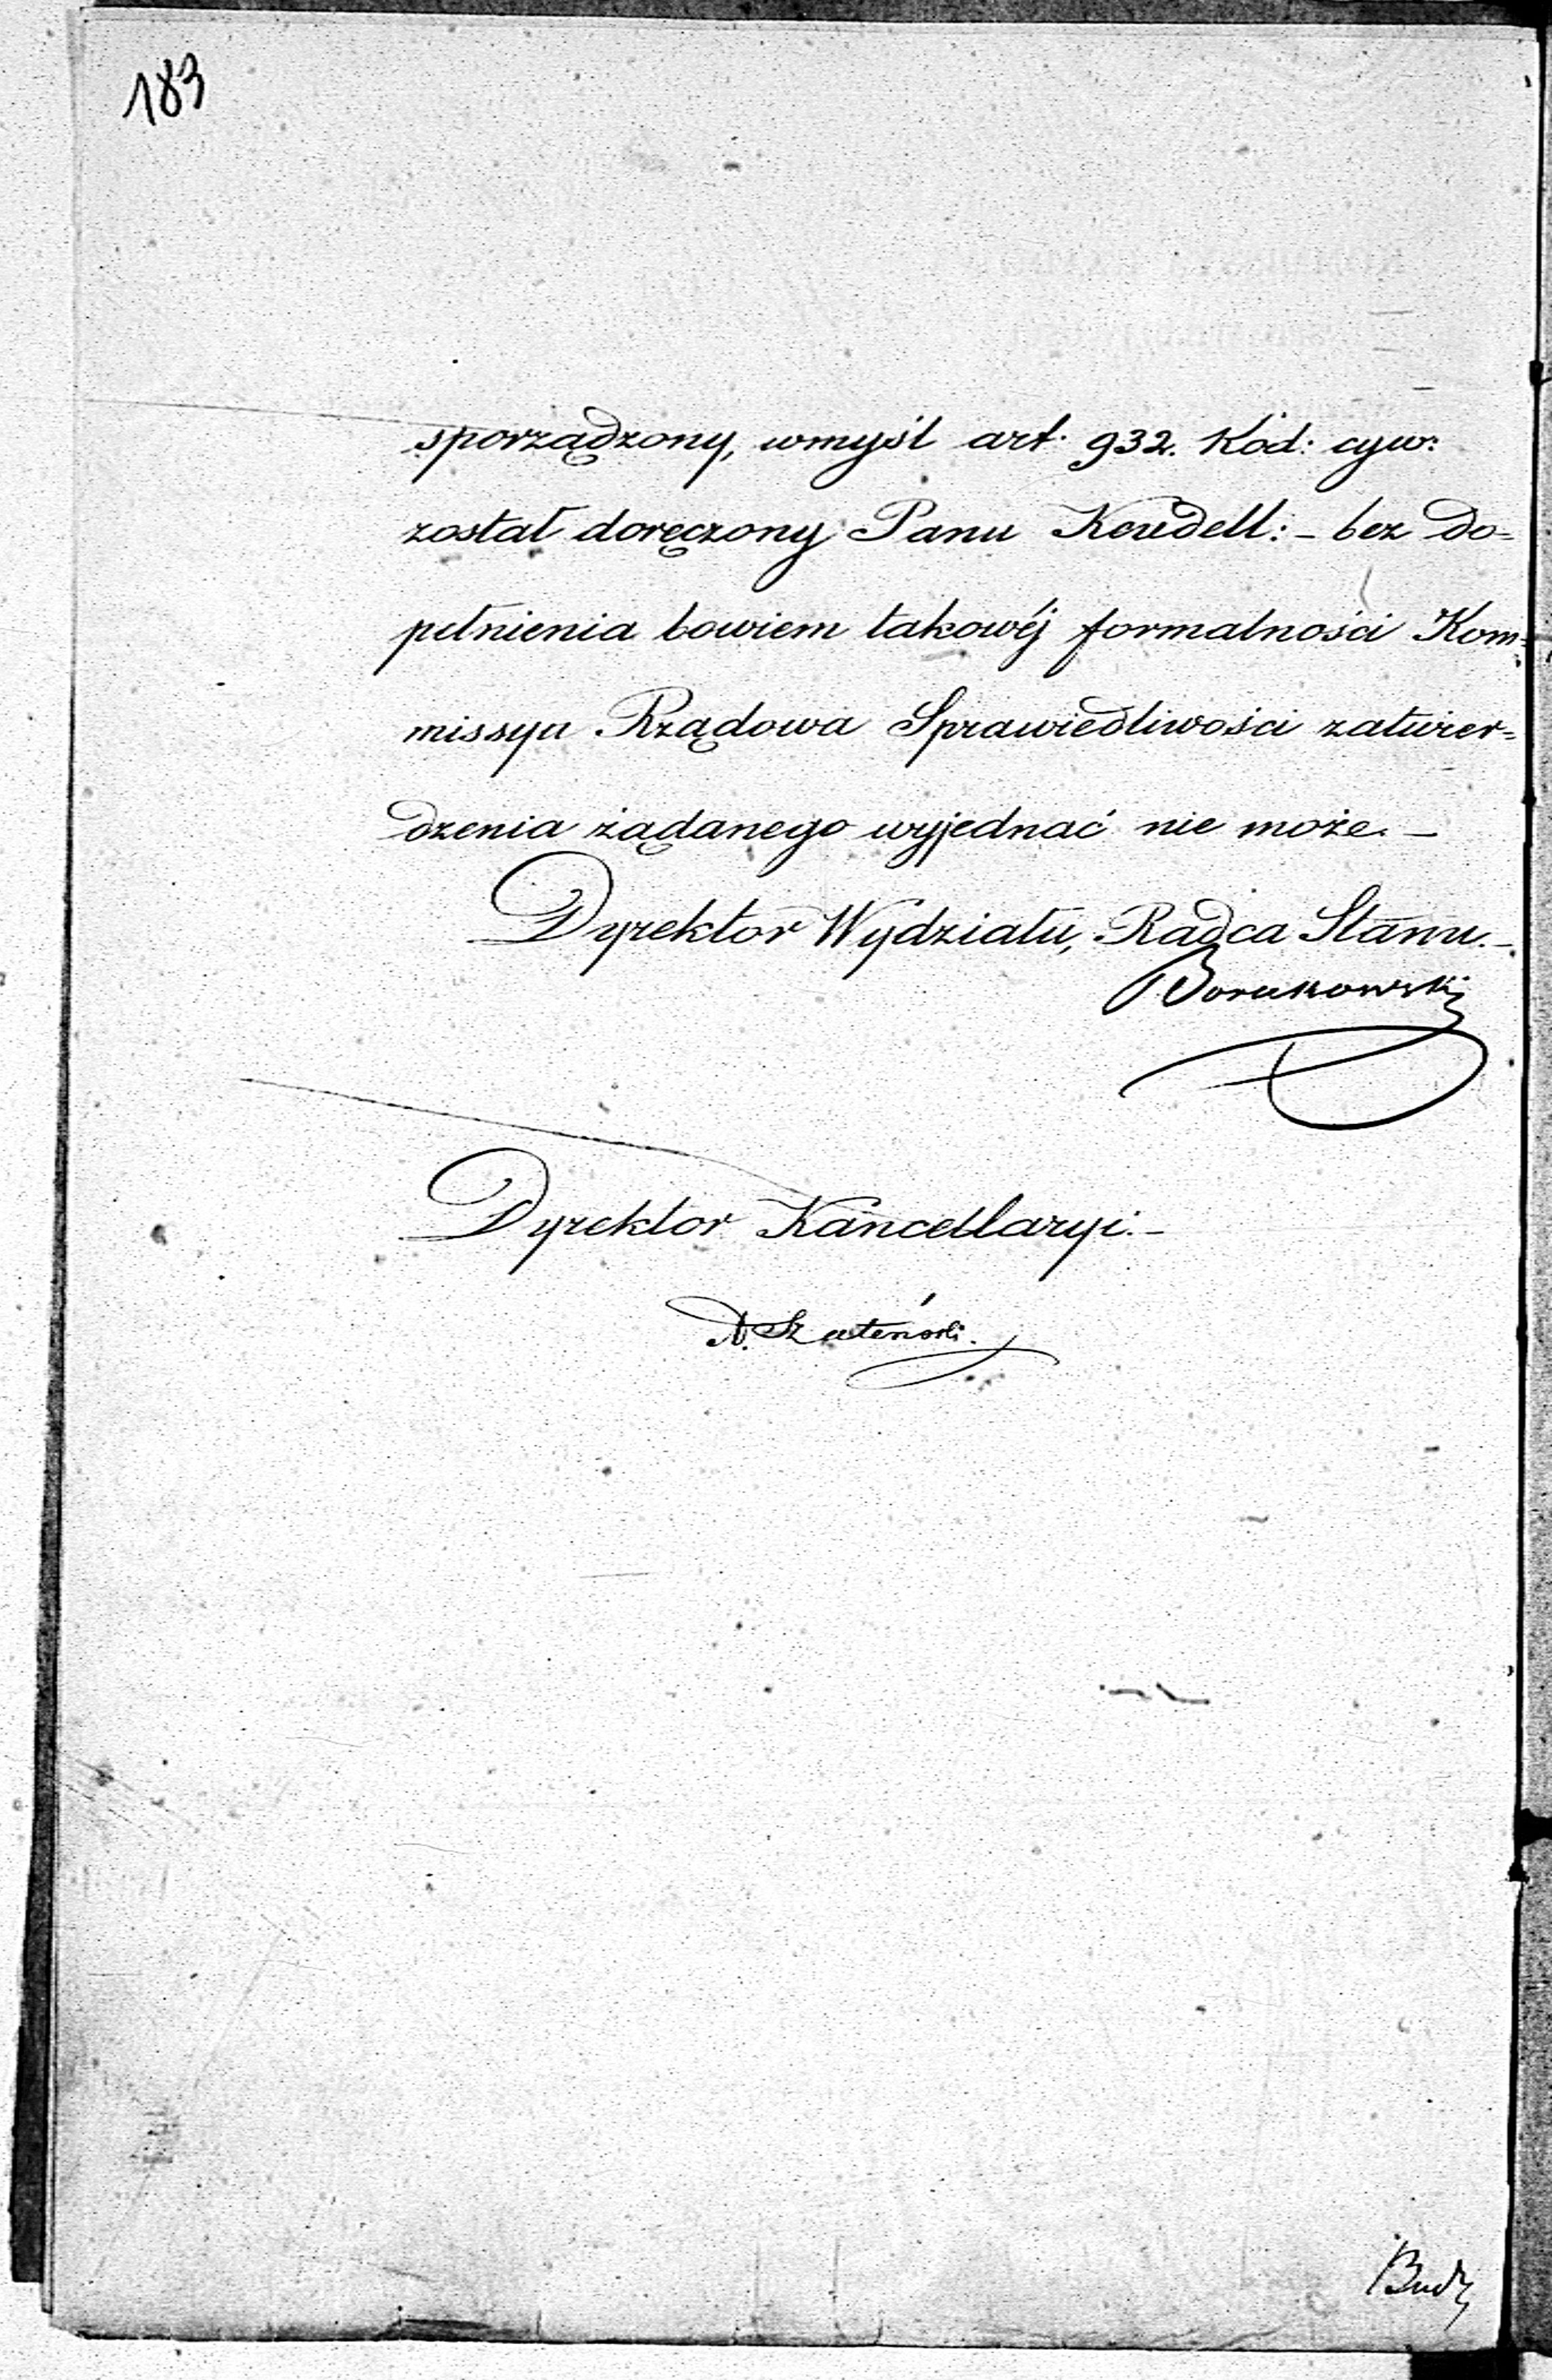 183
sporządzony, wmyśl art. 932. Kod: cyw:
został doręczony Panu Keudell: - bez do=
pełnienia bowiem takowéj formalności Kom=
missya Rządowa Sprawiedliwości zatwier=
dzenia żądanego wyjednać nie może. -
Dyrektor Wydziału, Radca Stanu. -
Dyrektor Kancellaryi. -